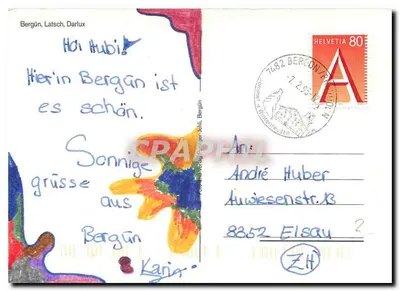 Bergün, Latsch, Darlux
Hoi Hubi!
Hier in Bergün ist
es schön.
Sonnige
grüsse
aus
Bergün
Karin
HELVETIA 80
A
7482 BERGÜN/
An:
André Huber
Auwiesenstr. 13
8352 Elsau
ZH